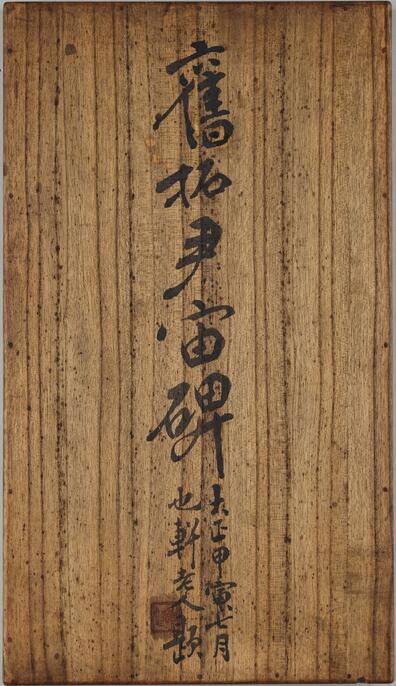 舊拓尹宙碑
大正甲寅七月
也軒老人題